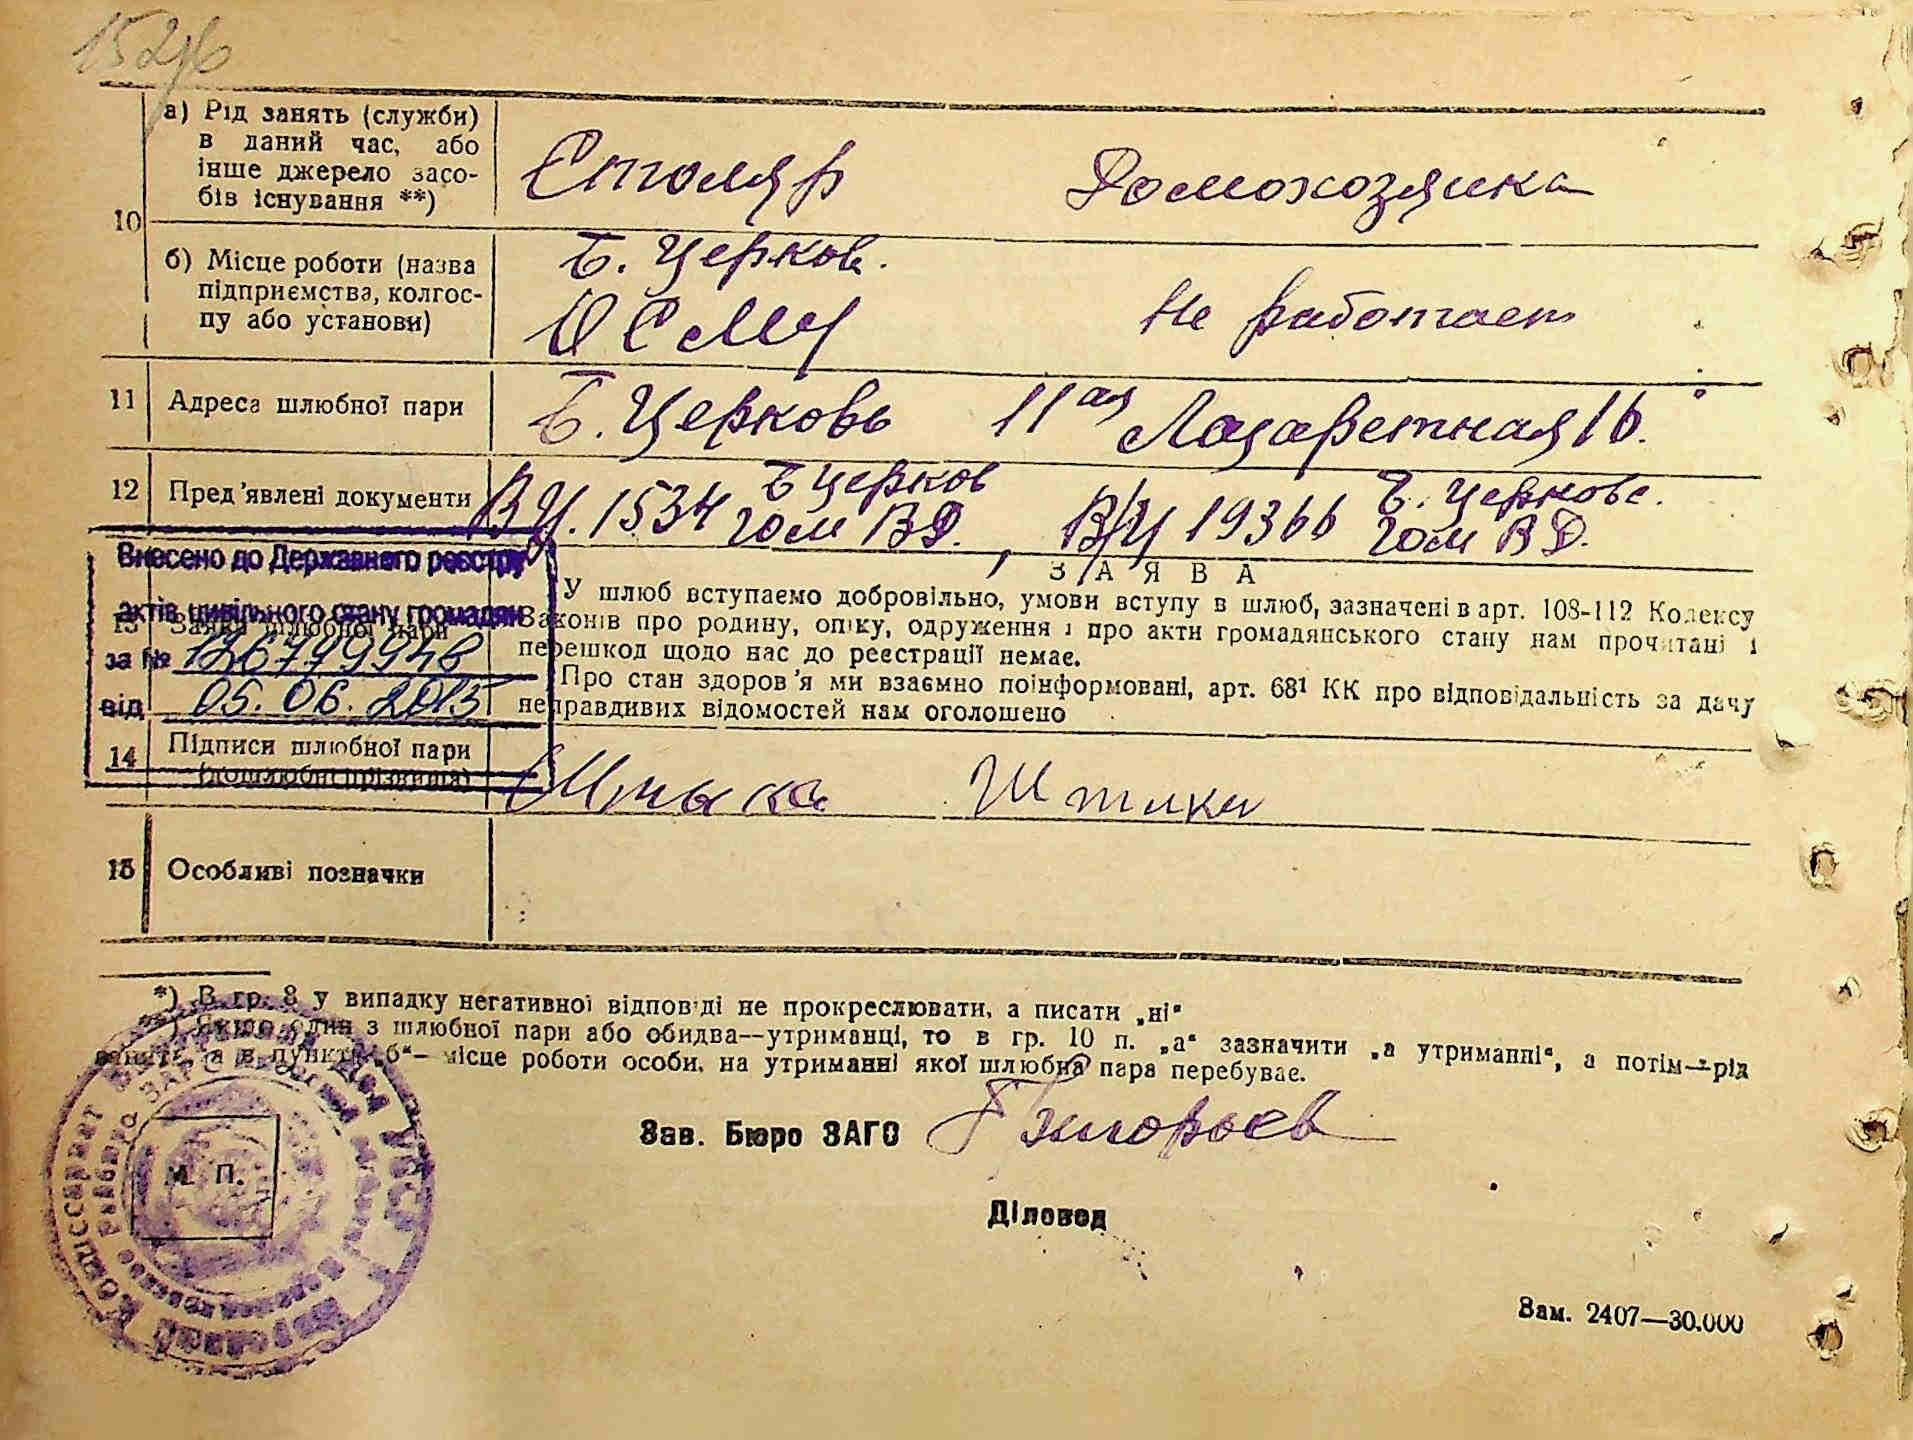 152/б
10
а) Рід занять (служби)
в даний час, або
інше джерело засо-
бів існування **)
Столяр
Домохозяика
б) Місце роботи (назва
підприємства, колгос-
пу або установи)
Б. Церков.
ОСМЧ
Не работает
11
Адреса шлюбної пари
Б. Церковь 11ая Лазаретная 16.
12
Пред'явлені документи
ВУ. 1534 Б Церков
Гом ВД.,
В/У 19366 Б. Церковс.
Гом ВД.
Внесено до Державного реєстру
актів цивільного стану громадян
за № 126799948
від 05.06.2015
13
Заява шлюбної пари
ЗАЯВА
У шлюб вступаємо добровільно, умови вступу в шлюб, зазначені в арт. 108-112 Кодексу
Законів про родину, опіку, одруження і про акти громадянського стану нам прочитані і
перешкод щодо нас до реєстрації немає.
Про стан здоров'я ми взаємно поінформовані, арт. 68¹ КК про відповідальність за дачу
неправдивих відомостей нам оголошено
14
Підписи шлюбної пари
(дошлюбні прізвища)
15
Особливі позначки
*) В гр. 8 у випадку негативної відповіді не прокреслювати, а писати „ні“
**) Якщо один з шлюбної пари або обидва—утриманці, то в гр. 10 п. „а“ зазначити „а утриманні“, а потім—рід
занять, а в пункті „б“— місце роботи особи, на утриманні якої шлюбна пара перебуває.
Зав. Бюро ЗАГС Григорьев
М. П.
Діловод
Зам. 2407—30.000